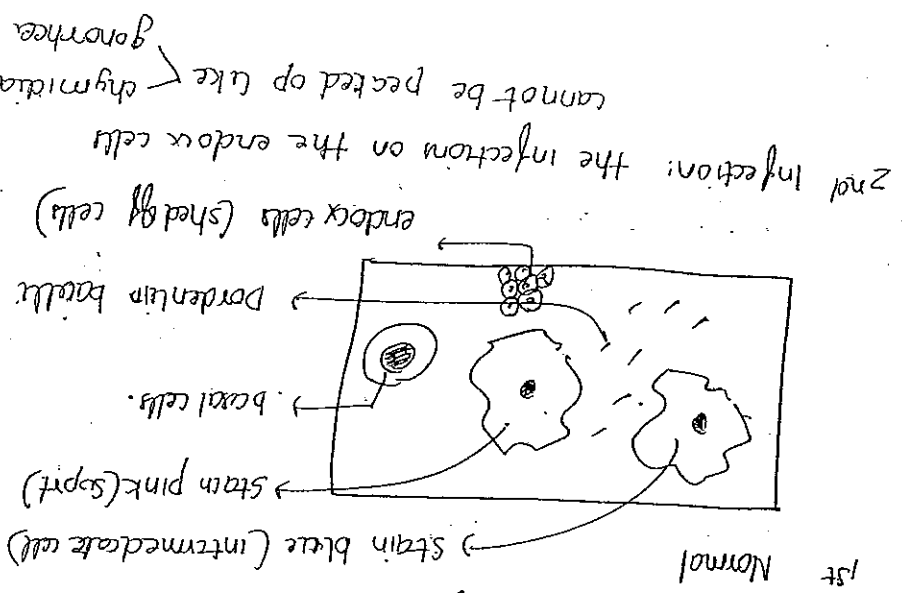 1st Normal
Stain blue (intermedeate cell)
Stain pink (supft)
basal cells.
Dorderlein bacilli
endocx cells (shed off cells)
2nd Infection: the infections on the endocx cells
cannot be peaked op like chymidia
gonorrhea